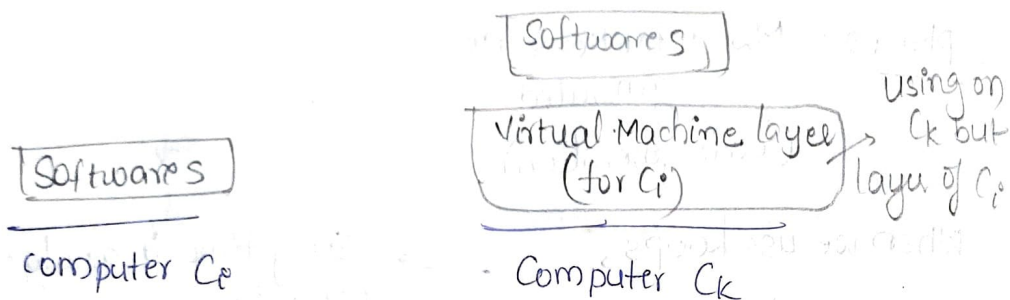 Softwares
Computer Ci
Softwares
Virtual Machine layer
(for Ci)
using on
Ck but
layer of Ci
Computer Ck